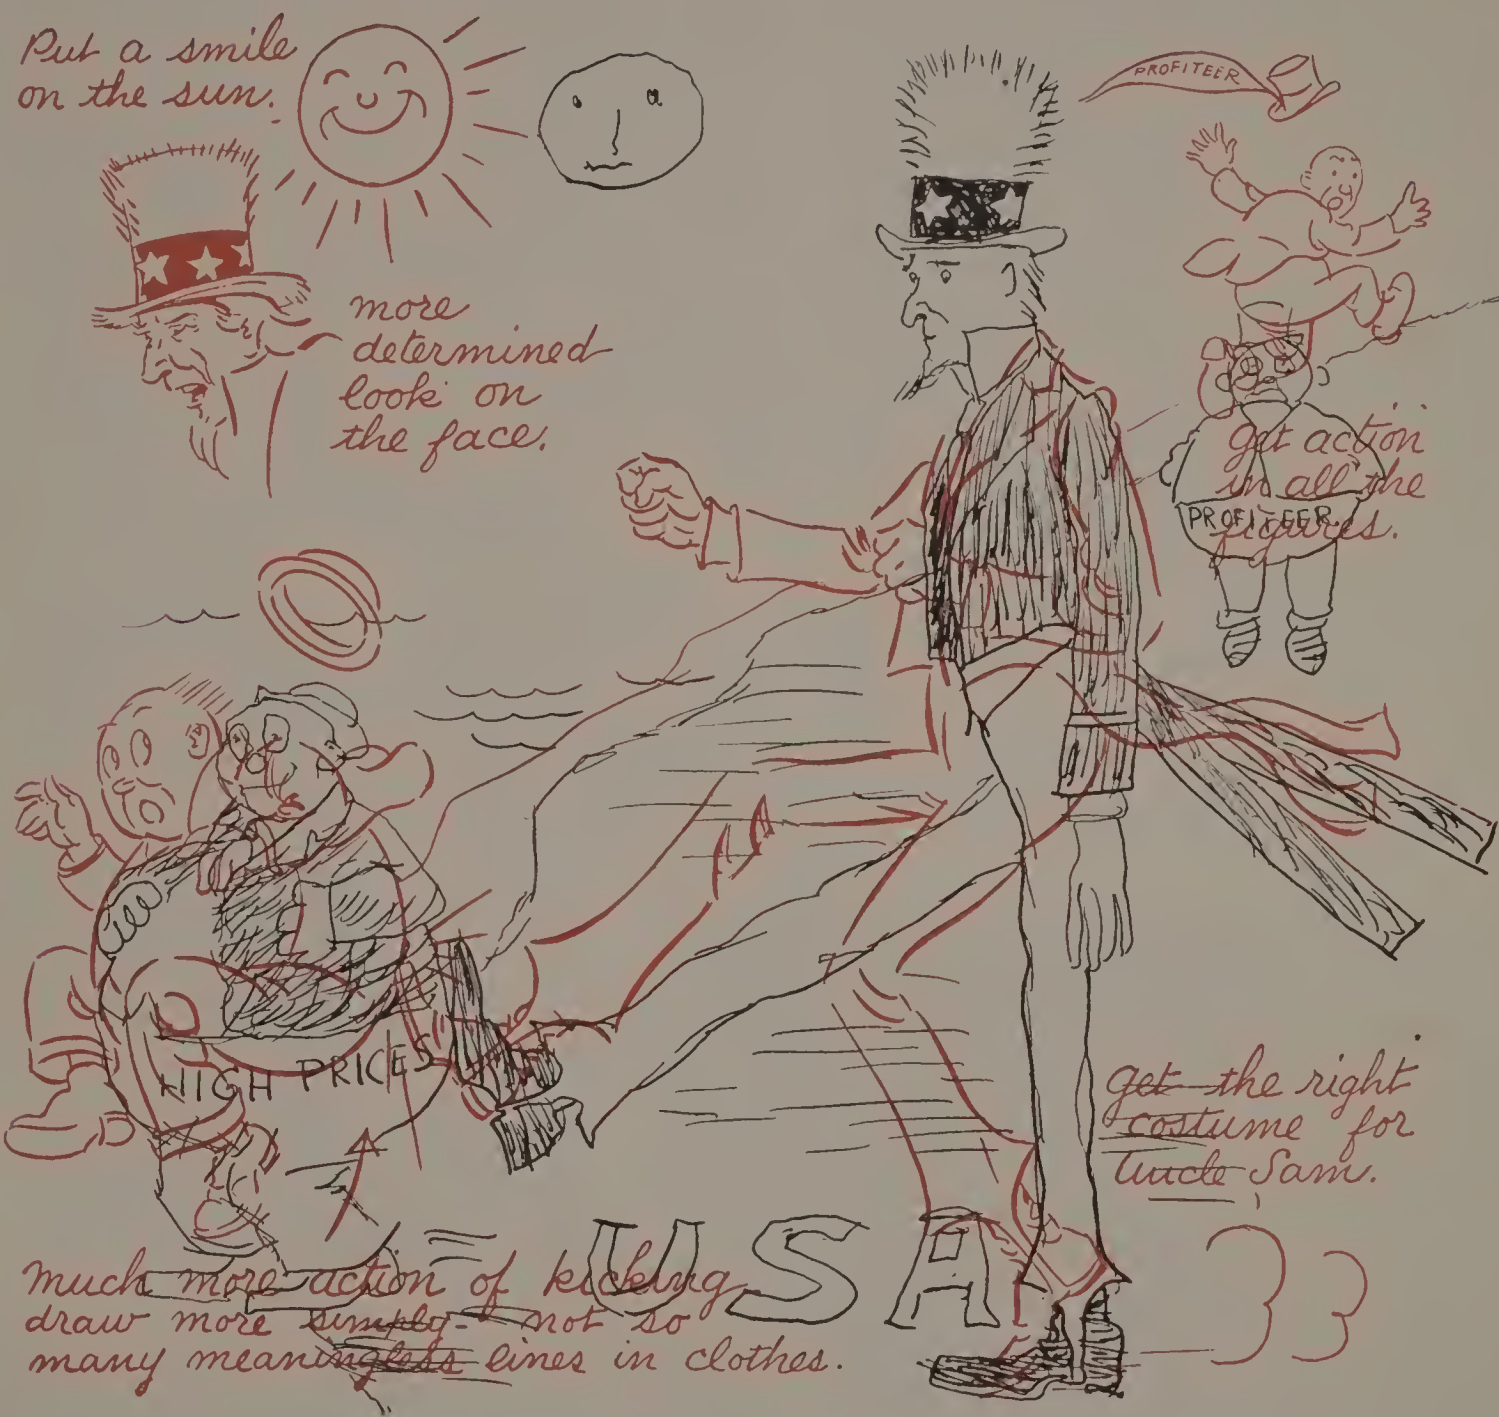 Put a smile
on the sun.
PROFITEER
more
determined
look on
the face.
get action
in all the
figures.
PROFITEER
HIGH PRICES
get the right
costume for
Uncle Sam.
USA
33
much more action of kicking
draw more simply - not so
many meaningless lines in clothes.